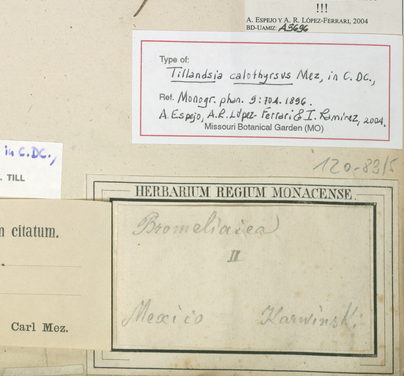 !!!
A. ESPEJO Y A. R. LÓPEZ-FERRARI, 2004
BD-UAMIZ: A3696
Type of:
Tillandsia calothyrsus Mez, in C. DC.,
Ref. Monogr. phan. 9: 704. 1896.
A. Espejo, A.R. López-Ferrari & I. Ramírez, 2004.
Missouri Botanical Garden (MO)
in C. DC.,
. TILL
120-83/5
HERBARIUM REGIUM MONACENSE.
m citatum.
Carl Mez.
Bromeliacea
II
Mexico Karwinski